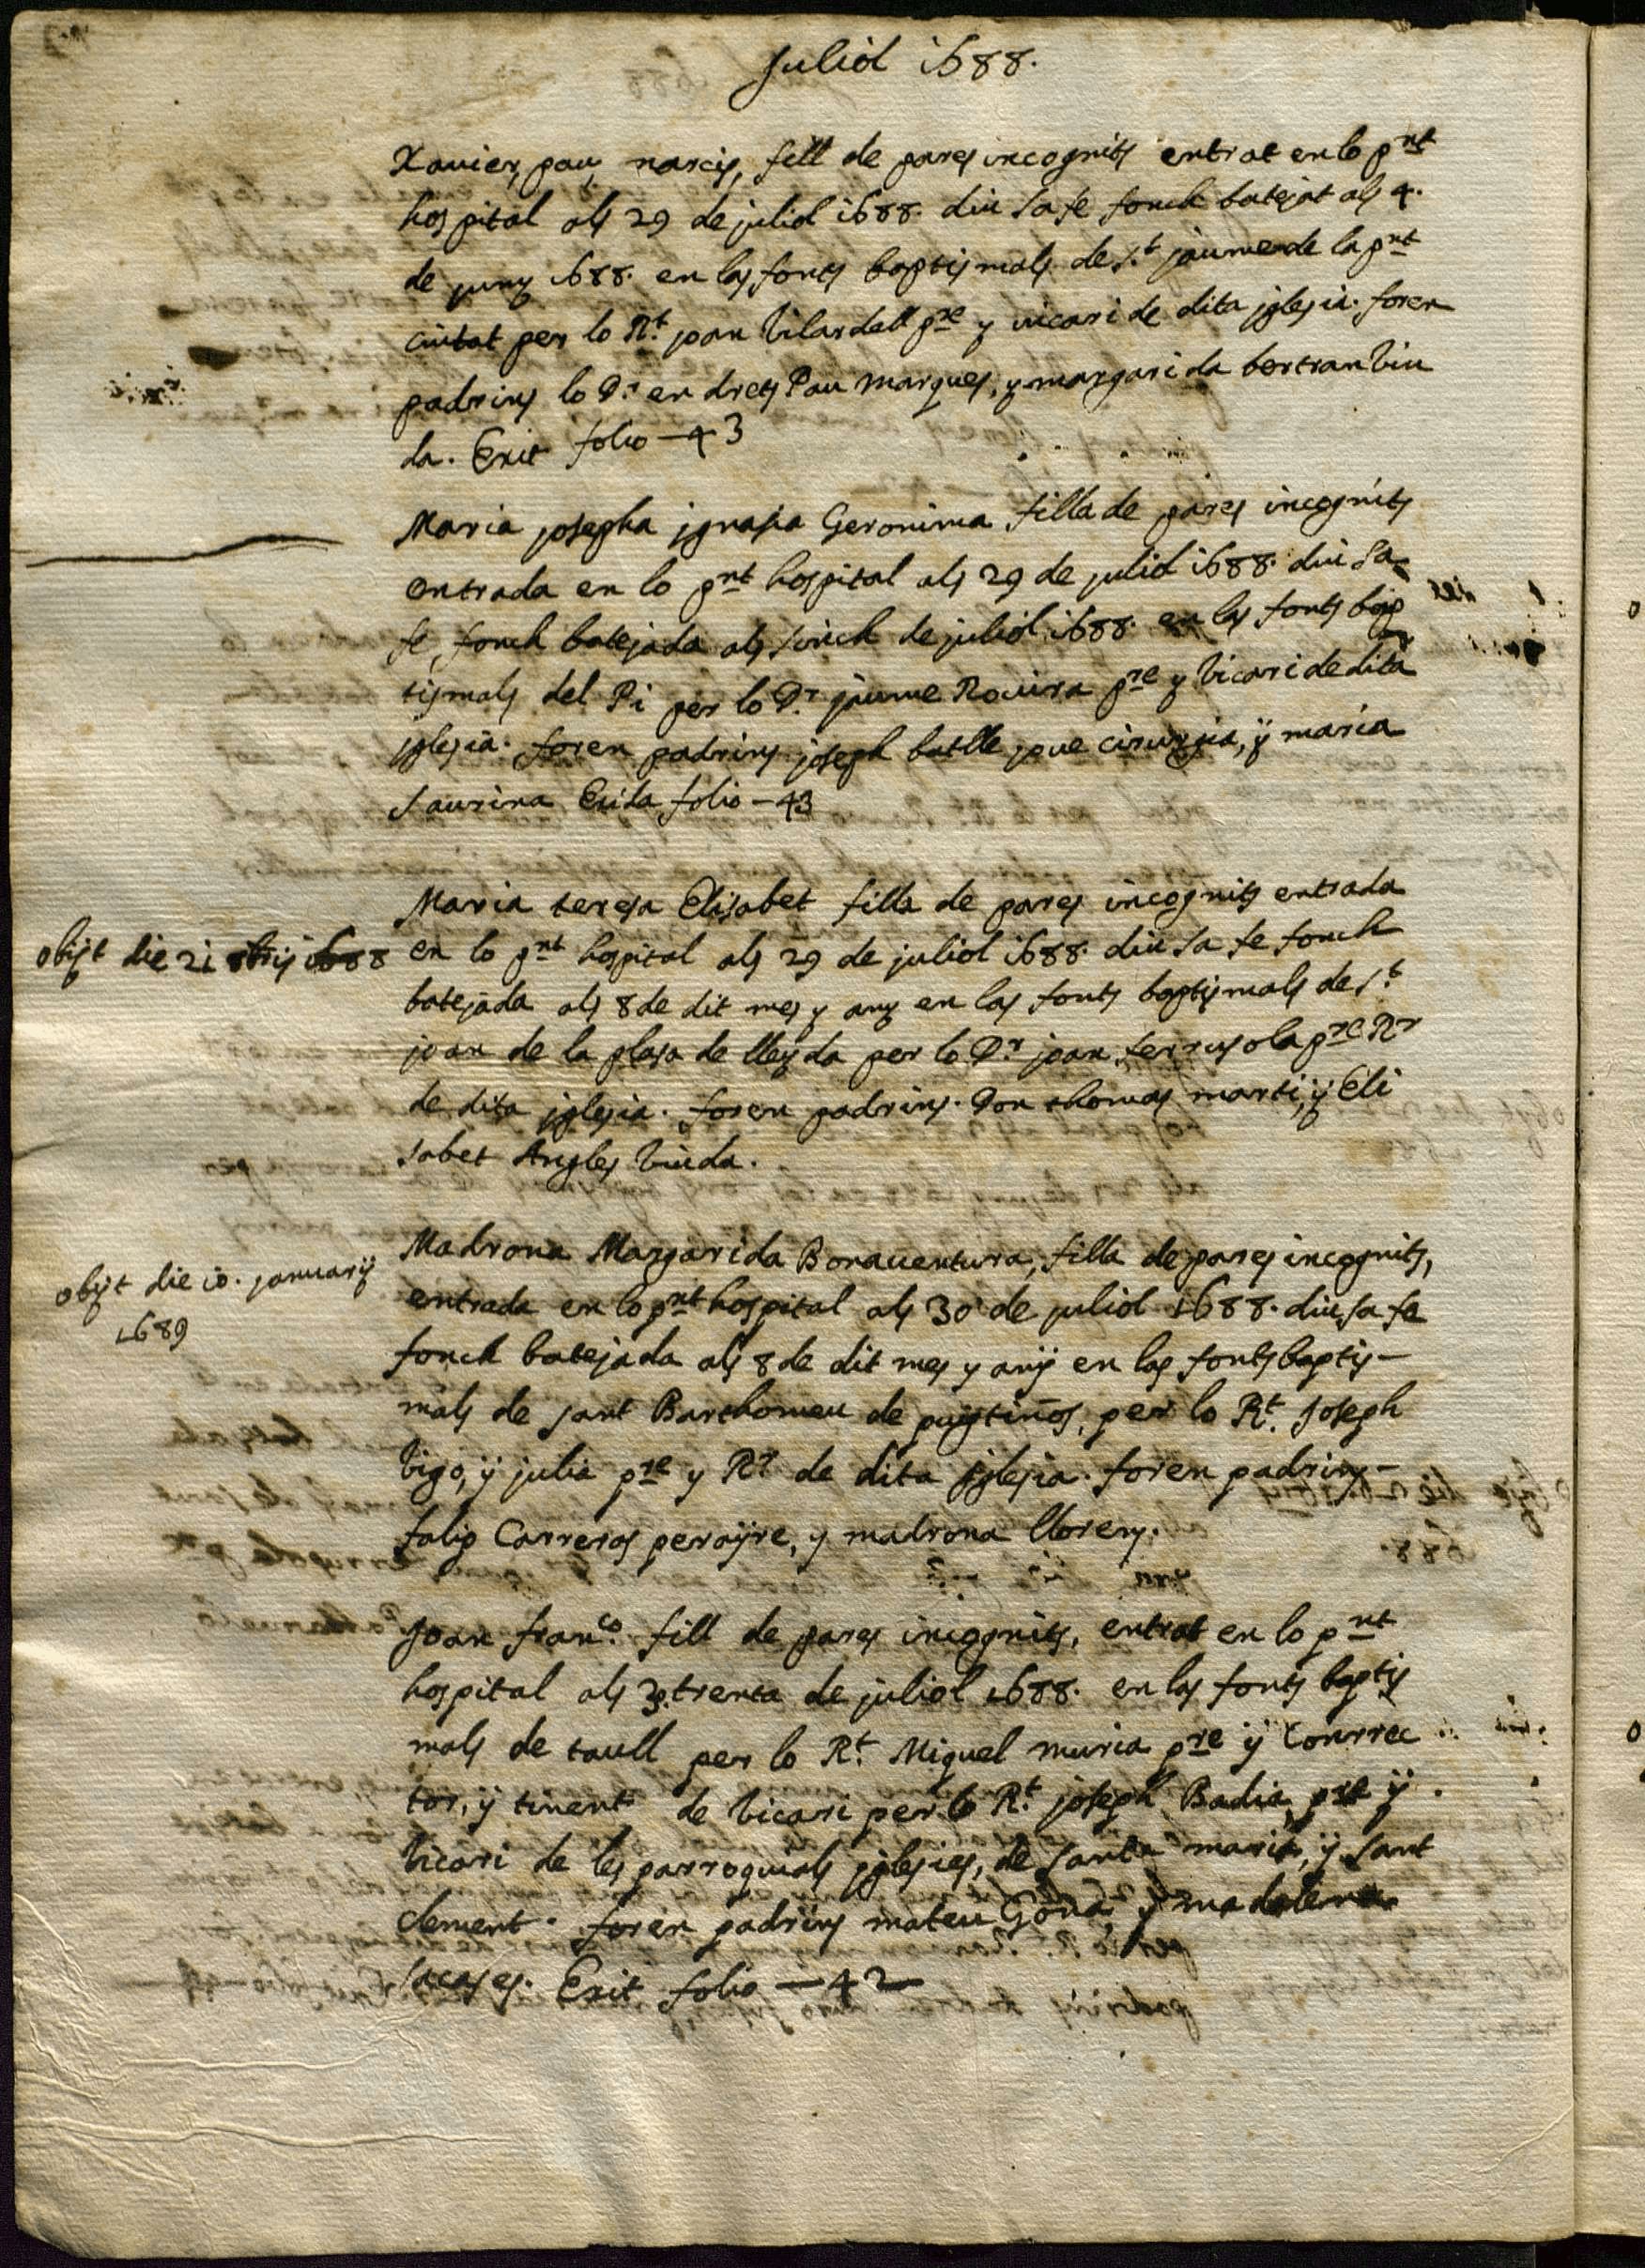 Juliol 1688.
Xauier, pau, narcis, fill de pares incognits entrat en lo pnt
hospital als 29 de juliol 1688. diu sa fe fonch batejat als 4.
de juny 1688. en las fonts baptismals de St jaume de la pnt
ciutat per lo Rt. joan Vilardell pre y vicari de dita jglesia. foren
padrins lo Dr. en drets Pau Marques, y margarida bertran viu
da. Exit folio — 43
Maria josepha jgnasia Geronima filla de pares incognits
entrada en lo pnt hospital als 29 de juliol 1688. diu sa
fe, fonch batejada als sinch de juliol 1688. en las fonts bap
tismals del Pi per lo Dr. jaume Rouira pre y vicari de dita
jglesia. foren padrins joseph batlle jove cirurgia, ÿ maria
saurina Exida folio — 43
Maria teresa Elisabet filla de pares incognits entrada
obijt die 21 8bris 1688
en lo pnt hospital als 29 de juliol 1688. diu sa fe fonch
batejada als 8 de dit mes y any en las fonts baptismals de St.
joan de la plasa de lleyda per lo Dr. joan ferrusola pre Rr
de dita jglesia. foren padrins. Don thomas marti, ÿ Eli
sabet Angles viuda.
Madrona Margarida Bonauentura, filla de pares incognits,
obijt die 10. januarij
1689
entrada en lo pnt hospital als 30 de juliol 1688. diu sa fe
fonch batejada als 8 de dit mes y anÿ en las fonts baptis–
mals de sant Barthomeu de pugtiños, per lo Rt. Joseph
Vigo, ÿ julia pre y Rr de dita jglesia. foren padrins –
falip Carreras peraÿre, y madrona llorens.
Joan franco. fill de pares incognits, entrat en lo pnt
hospital als 30. trenta de juliol 1688. en las fonts baptis
mals de taull per lo Rt. Miguel muria pre ÿ Conrrec
tor, ÿ tinent de vicari per lo Rt. joseph Badia, pre ÿ
vicari de les parroquials jglesies, de santa maria, ÿ sant
clement. foren padrins mateu Gona, y madalena
sacases. Exit folio — 42